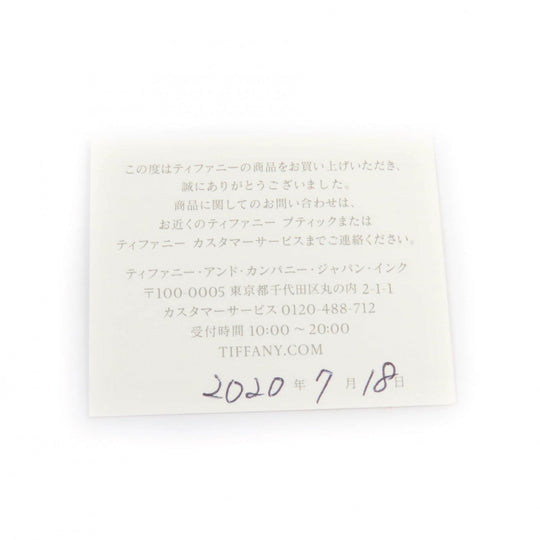 この度はティファニーの商品をお買い上げいただき、
誠にありがとうございました。
商品に関してのお問い合わせは、
お近くのティファニー ブティックまたは
ティファニー カスタマーサービスまでご連絡ください。
ティファニー・アンド・カンパニー・ジャパン・インク
〒100-0005 東京都千代田区丸の内 2-1-1
カスタマーサービス 0120-488-712
受付時間 10:00 〜 20:00
TIFFANY.COM
2020 年 7 月 18 日